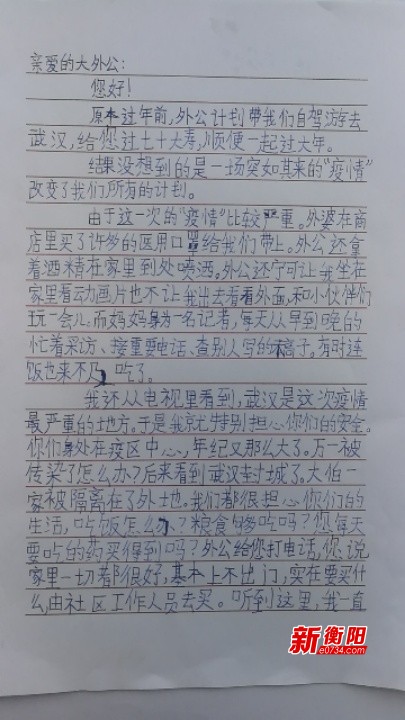 亲爱的大外公:
您好!
原本过年前,外公计划带我们自驾游去
武汉,给您过七十大寿,顺便一起过大年。
结果没想到的是一场突如其来的“疫情”
改变了我们所有的计划。
由于这一次的“疫情”比较严重。外婆在商
店里买了许多的医用口罩给我们带上。外公还拿
着酒精在家里到处喷洒。外公还宁可让我坐在
家里看动画片也不让我出去看看外面,和小伙伴们
玩一会儿。而妈妈身为一名记者,每天从早到晚的
忙着采访、接重要电话、查别人写的稿子。有时连
饭也来不及吃了。
我还从电视里看到,武汉是这次疫情
最严重的地方。于是我就特别担心你们的安全。
你们身处在疫区中心,年纪又那么大了。万一被
传染了怎么办?后来看到武汉封城了。大伯一
家被隔离在了外地。我们都很担心你们的
生活,吃饭怎么办?粮食够吃吗?您每天
要吃的药买得到吗?外公给您打电话,您说
家里一切都很好,基本上不出门,实在要买什
么,由社区工作人员去买。听到这里,我一直
新衡阳
e0734.com